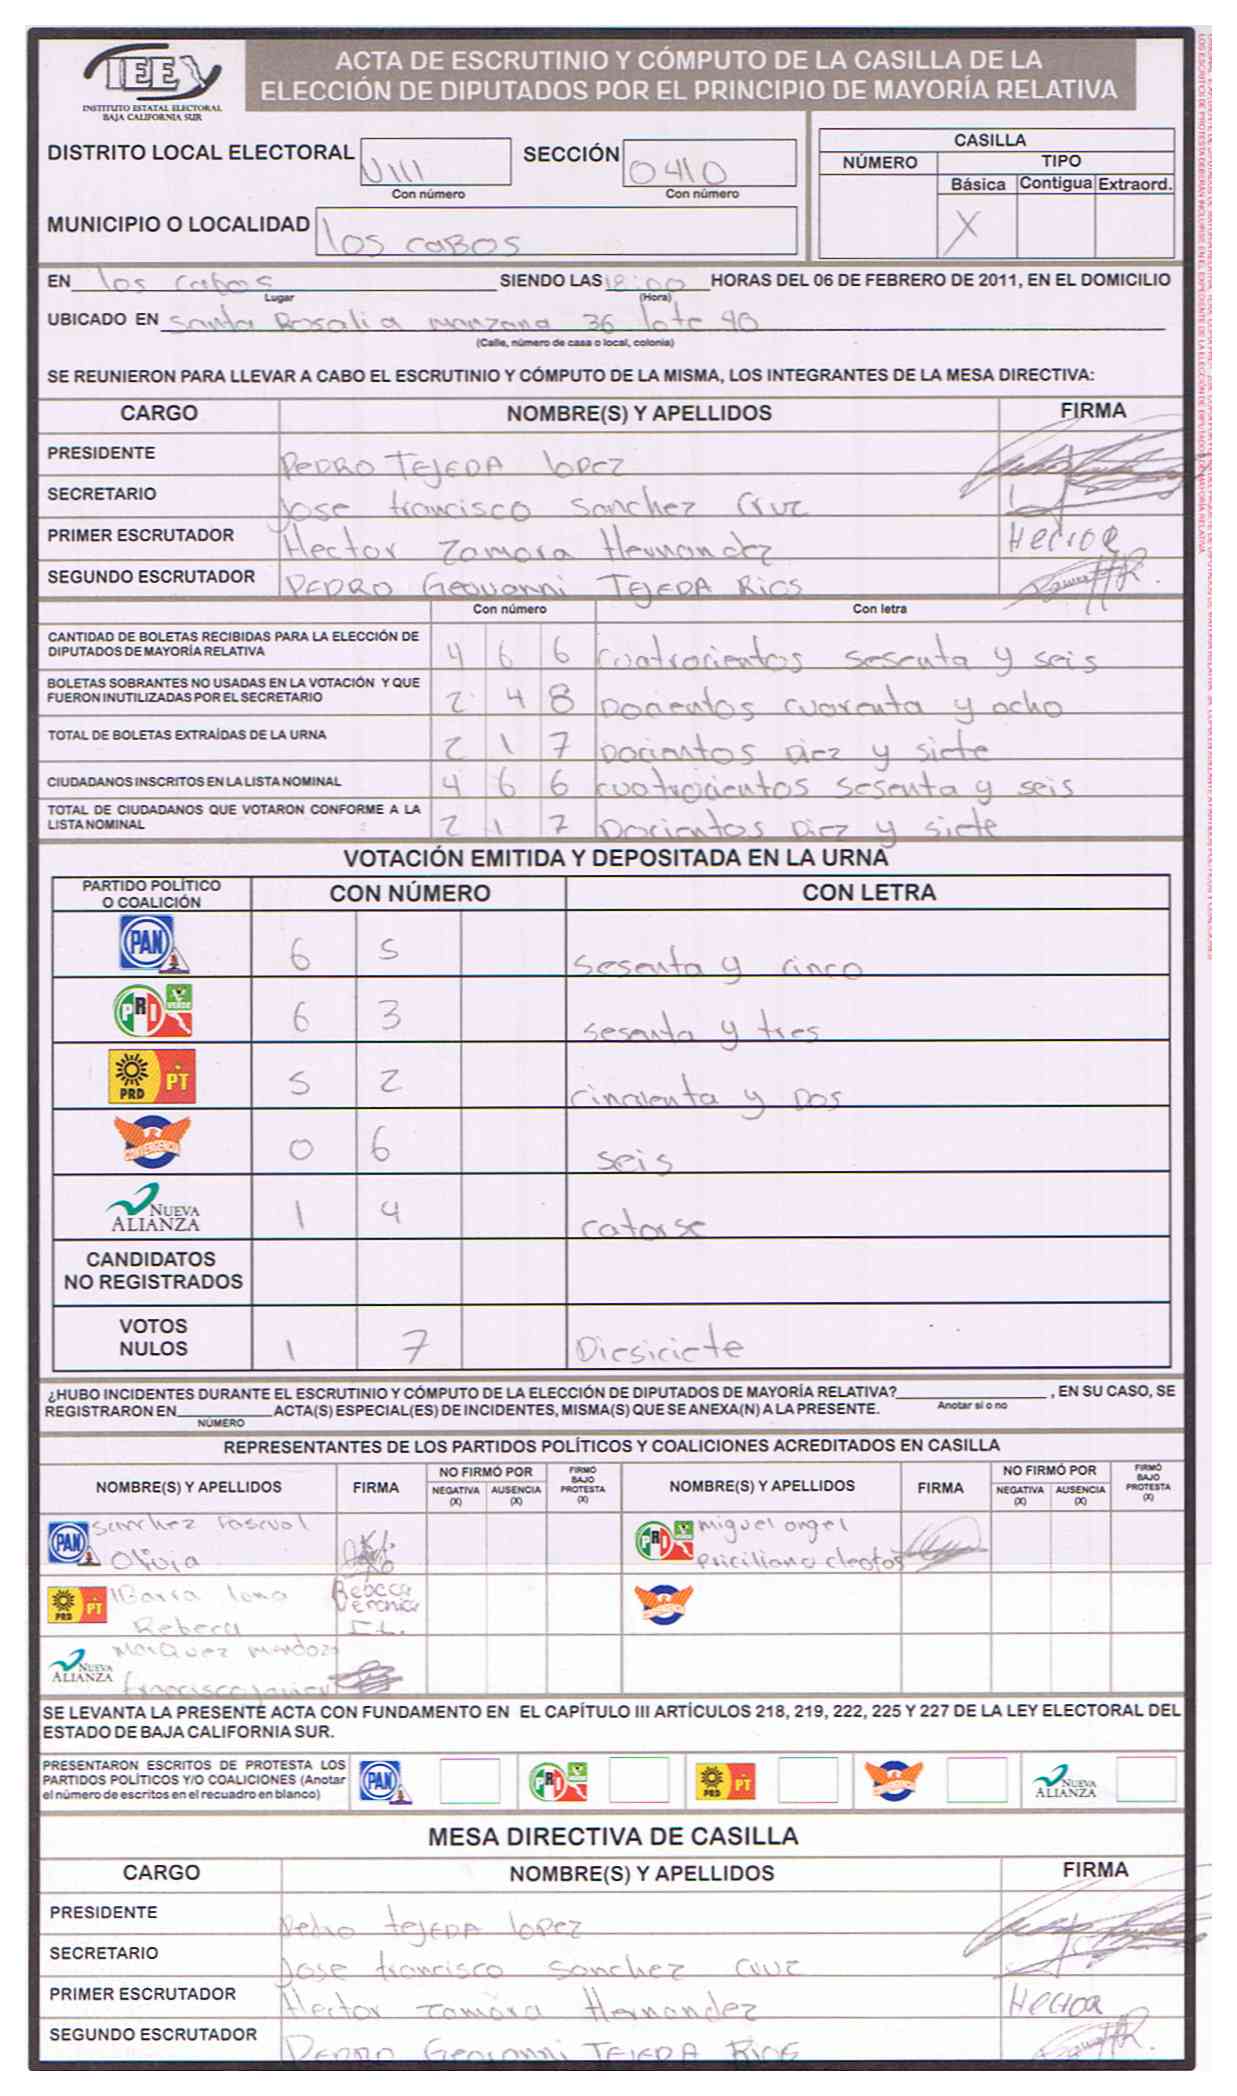 IEE
INSTITUTO ESTATAL ELECTORAL
BAJA CALIFORNIA SUR
ACTA DE ESCRUTINIO Y CÓMPUTO DE LA CASILLA DE LA
ELECCIÓN DE DIPUTADOS POR EL PRINCIPIO DE MAYORÍA RELATIVA
DISTRITO LOCAL ELECTORAL VIII SECCIÓN 0410
Con número Con número
MUNICIPIO O LOCALIDAD los cabos
CASILLA
NÚMERO TIPO
Básica Contigua Extraord.
X
EN los cabos SIENDO LAS 18:00 HORAS DEL 06 DE FEBRERO DE 2011, EN EL DOMICILIO
Lugar (Hora)
UBICADO EN Santa Rosalia manzana 36 lote 40
(Calle, número de casa o local, colonia)
SE REUNIERON PARA LLEVAR A CABO EL ESCRUTINIO Y CÓMPUTO DE LA MISMA, LOS INTEGRANTES DE LA MESA DIRECTIVA:
CARGO NOMBRE(S) Y APELLIDOS FIRMA
PRESIDENTE PEDRO TEJEDA lopez
SECRETARIO Jose francisco Sanchez Cruz
PRIMER ESCRUTADOR Hector Zamora Hernandez Hector
SEGUNDO ESCRUTADOR PEDRO Geovanni TEJEDA RIOS
Con número Con letra
CANTIDAD DE BOLETAS RECIBIDAS PARA LA ELECCIÓN DE
DIPUTADOS DE MAYORÍA RELATIVA 4 6 6 cuatrocientos sesenta y seis
BOLETAS SOBRANTES NO USADAS EN LA VOTACIÓN Y QUE
FUERON INUTILIZADAS POR EL SECRETARIO 2 4 8 Docientos cuarenta y ocho
TOTAL DE BOLETAS EXTRAÍDAS DE LA URNA 2 1 7 Docientos Diez y siete
CIUDADANOS INSCRITOS EN LA LISTA NOMINAL 4 6 6 cuatrocientos sesenta y seis
TOTAL DE CIUDADANOS QUE VOTARON CONFORME A LA
LISTA NOMINAL 2 1 7 Docientos Diez y siete
VOTACIÓN EMITIDA Y DEPOSITADA EN LA URNA
PARTIDO POLÍTICO
O COALICIÓN CON NÚMERO CON LETRA
PAN 6 5 sesenta y cinco
PRI VERDE 6 3 sesenta y tres
PRD PT 5 2 cincuenta y Dos
CONVERGENCIA 0 6 seis
NUEVA
ALIANZA 1 4 catorse
CANDIDATOS
NO REGISTRADOS
VOTOS
NULOS 1 7 Diesiciete
¿HUBO INCIDENTES DURANTE EL ESCRUTINIO Y CÓMPUTO DE LA ELECCIÓN DE DIPUTADOS DE MAYORÍA RELATIVA? , EN SU CASO, SE
Anotar si o no
REGISTRARON EN ACTA(S) ESPECIAL(ES) DE INCIDENTES, MISMA(S) QUE SE ANEXA(N) A LA PRESENTE.
NÚMERO
REPRESENTANTES DE LOS PARTIDOS POLÍTICOS Y COALICIONES ACREDITADOS EN CASILLA
NOMBRE(S) Y APELLIDOS FIRMA NO FIRMÓ POR NEGATIVA (X) AUSENCIA (X) FIRMÓ BAJO PROTESTA (X) NOMBRE(S) Y APELLIDOS FIRMA NO FIRMÓ POR NEGATIVA (X) AUSENCIA (X) FIRMÓ BAJO PROTESTA (X)
PAN Sanchez Pascual PRI VERDE miguel angel
Olivia priciliano cleofas
PRD PT IBarra luna Rebeca
Rebeca Veronica
I.L.
CONVERGENCIA
NUEVA
ALIANZA Marquez Mendoza
francisco Javier
SE LEVANTA LA PRESENTE ACTA CON FUNDAMENTO EN EL CAPÍTULO III ARTÍCULOS 218, 219, 222, 225 Y 227 DE LA LEY ELECTORAL DEL
ESTADO DE BAJA CALIFORNIA SUR.
PRESENTARON ESCRITOS DE PROTESTA LOS
PARTIDOS POLÍTICOS Y/O COALICIONES (Anotar
el número de escritos en el recuadro en blanco)
PAN PRI VERDE PRD PT CONVERGENCIA NUEVA ALIANZA
MESA DIRECTIVA DE CASILLA
CARGO NOMBRE(S) Y APELLIDOS FIRMA
PRESIDENTE Pedro tejEDA lopez
SECRETARIO Jose francisco Sanchez Cruz
PRIMER ESCRUTADOR Hector Zamora Hernandez Hector
SEGUNDO ESCRUTADOR PEDRO Geovanni TEJEDA RIOS